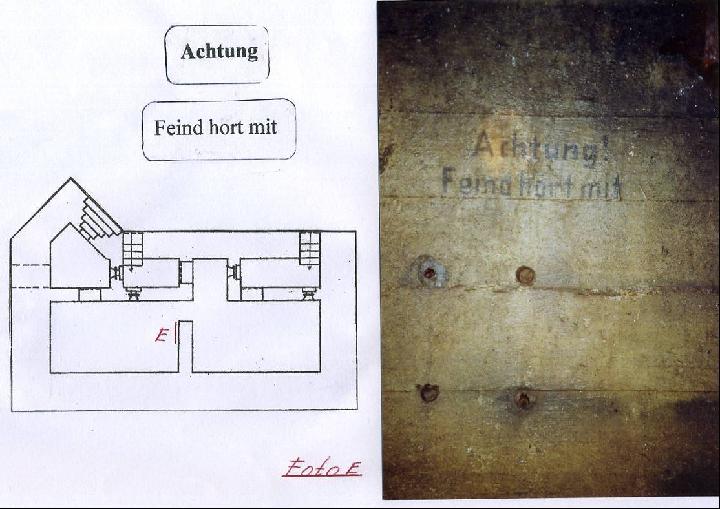 Achtung
Feind hort mit
E
Foto E
Achtung!
Feind hört mit